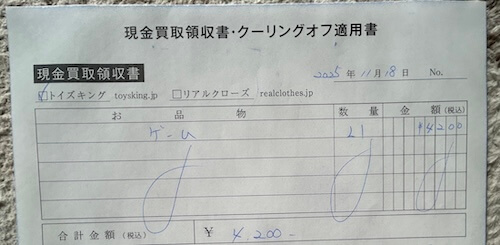 現金買取領収書・クーリングオフ適用書
現金買取領収書 2025年11月18日 No.
☑トイズキング toysking.jp □リアルクローズ realclothes.jp
お品物 数量 金額(税込)
ゲーム 21 ¥4200
合計金額(税込) ¥ 4,200-